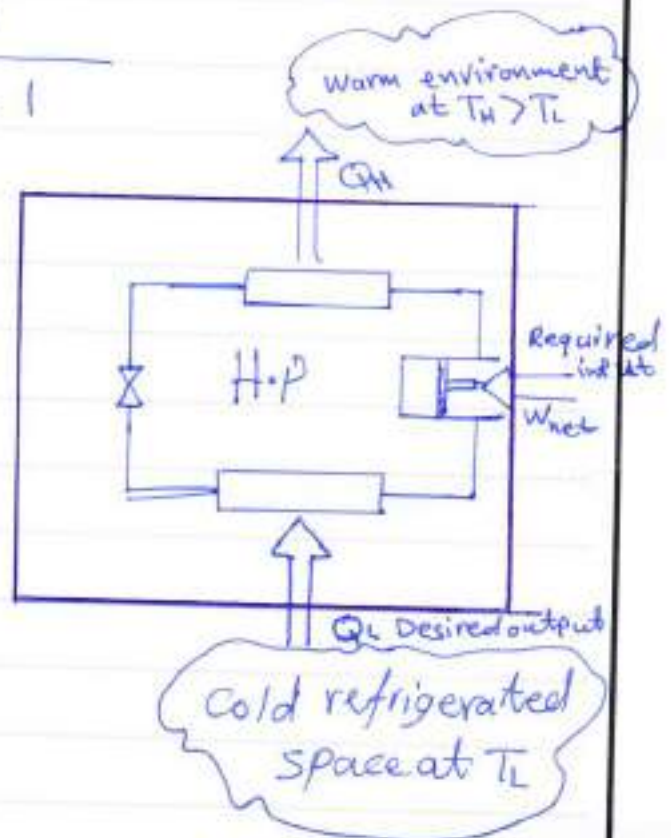 1
Warm environment
at TH > TL
QH
H.P
Required
input
Wnet
QL Desired output
Cold refrigerated
space at TL